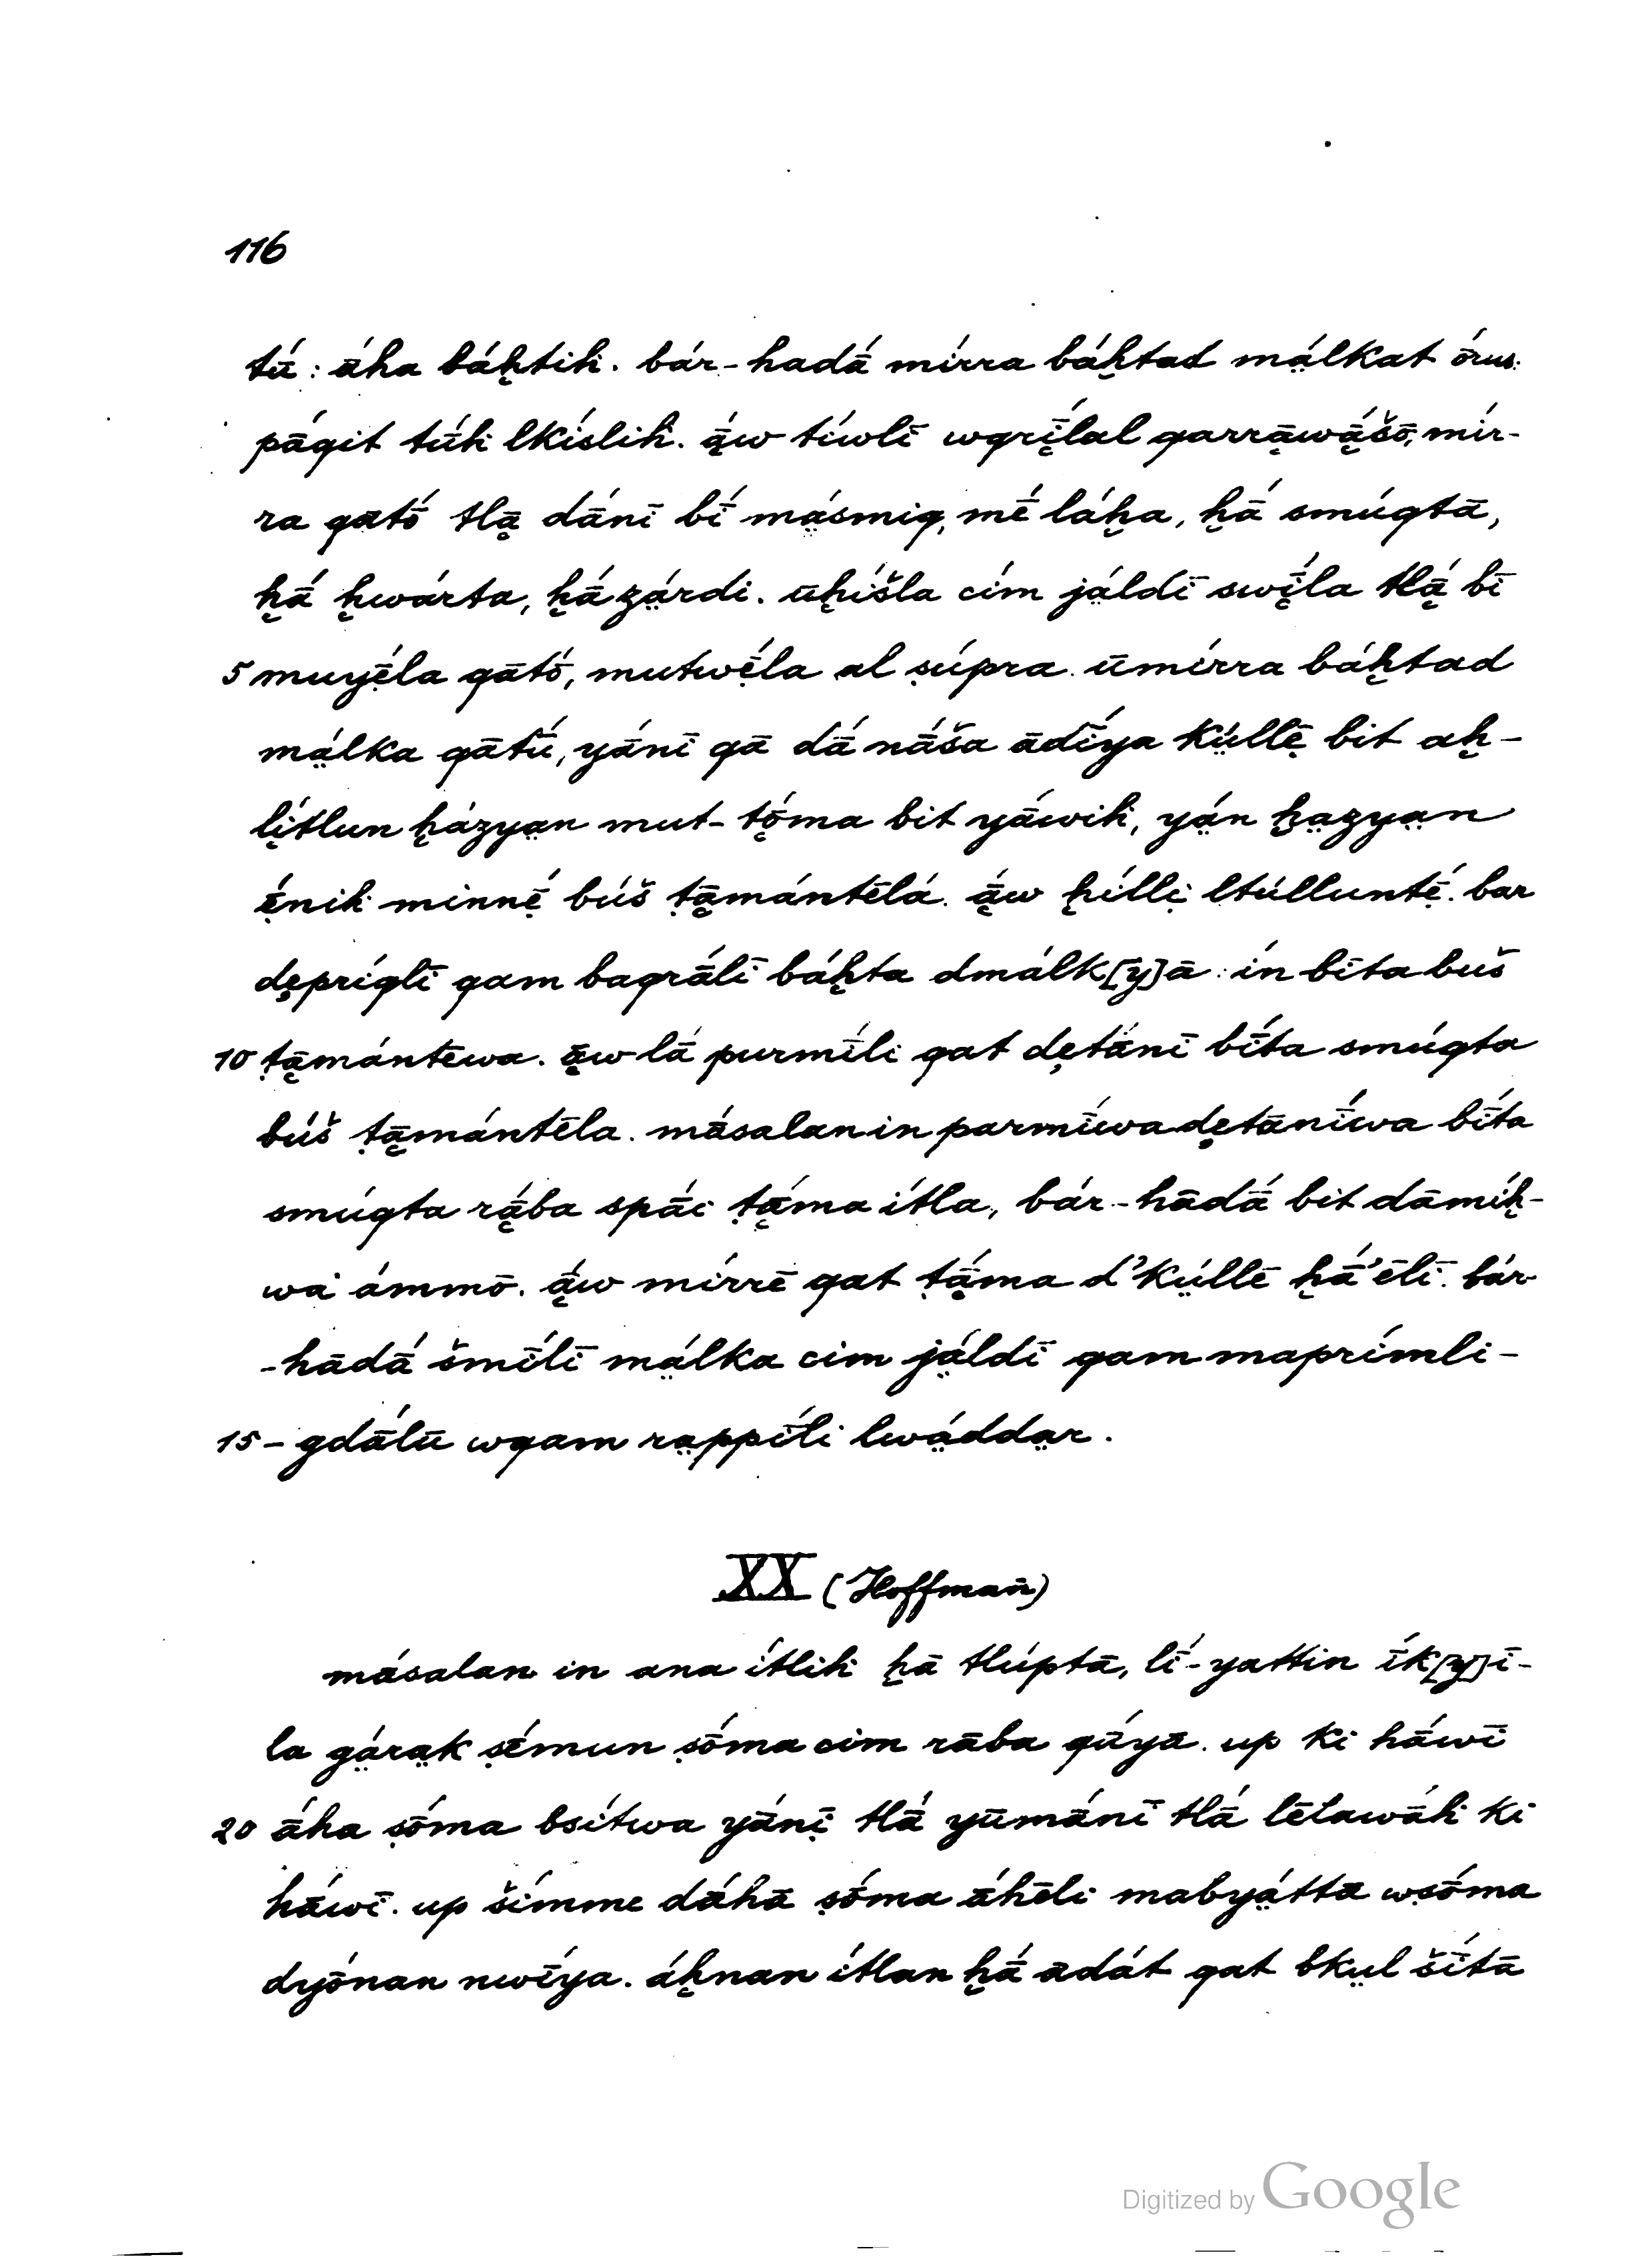 116
tū́ : ā́ha báḫtih. bár-hadā́ mírra báḫtad má̤lkat ṓrus:
pā́qit túh lkíslih. ā̯́w tíwlī wqrī̯́lal qarrā̯wā̯́šō, mír-
ra qatṓ tlā̯ dánī bī́ má̤smiq, mḗ láḫa, ḫā́ smúqtā,
ḫā́ ḫwárta, ḫā́ zá̤rdi. ūḫíšla cím já̤ldī swī̯́la tlā̯́ bī
5 muyḗ̤la qātṓ, mutwḗ̤la al ṣúpra. ūmírra báḫtad
má̤lka qātū́, yánī qā dā́ nā́ša ādī́ya kṳ́llē̤ bit aḫ-
lí̯tlun ḫázya̤n mut-ṭṓ̯ma bit yā́wih, yá̤n ḫa̤zya̤n
ḗ̤nih minnḗ̤ búš ṭā̯mántēlá. ā̯́w ḫílli̤ ltúlluntḗ̤. bar
de̤príqlī qam baqrā́lī báḫta dmálk[y]ā : ín bīta buš
10 ṭā̯mántēwa. ā̯́w lā́ purmī́li qat de̤tā́nī bī́ta smúqta
búš ṭā̯mántēla. mā́salan in parmī́wa de̤tānī́wa bī́ta
smúqta rā̯́ba spā́i ṭā̯́ma ítla, bár-hādā́ bit dāmíḫ-
wa ámmō. ā̯́w mírrē qat ṭā̯́ma d'kṳ́llē ḫā́'ēlī. bár-
-hādā́ šmī́lī má̤lka cim já̤ldī qam maprímli-
15 -gdā́lū wqam ra̤ppī́li lwá̤dda̤r.
XX (Hoffmañ)
másalan in ana ítlih ḫā tlúptā, lī́-yattin īk[y]ī-
la gá̤ra̤k ṣḗmun ṣṓma cim rāba qū́yā. up ki hā́wī
20 ā́ha ṣṓma bsítwa yā́nī̤ tlā́ yūmā́nī tlá lēlawā́h ki
hā́wī. up šímme dáhā ṣṓma ā́hēli mabyá̤ttā wṣṓma
dyṓnan nwī́ya. áḫnan ítlan ḫā́ adát qat bkṳl šī́tā
Digitized by Google